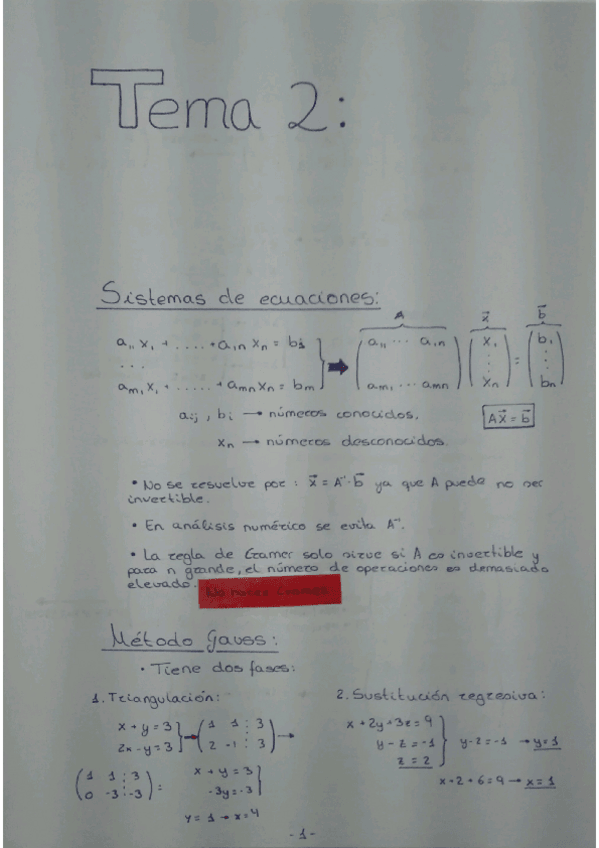 Tema 2:
Sistemas de ecuaciones:
a₁₁ x₁ + ..... + a₁n xn = b₁
...
am₁ x₁ + ...... + amn xn = bm
A x⃗ b⃗
( a₁₁ ... a₁n ) ( x₁ ) = ( b₁ )
( am₁ ... amn ) ( xn ) ( bn )
aij , bi → números conocidos.
Ax⃗ = b⃗
xn → números desconocidos.
• No se resuelve por : x⃗ = A⁻¹·b⃗ ya que A puede no ser
invertible.
• En análisis numérico se evita A⁻¹.
• La regla de Cramer solo sirve si A es invertible y
para n grande, el número de operaciones es demasiado
elevado. No hacer Cramer
Método Gauss:
• Tiene dos fases:
1. Triangulación:
x + y = 3
2x - y = 3
( 1 1 : 3 )
( 2 -1 : 3 ) →
( 1 1 : 3 )
( 0 -3 : -3 ) :
x + y = 3
-3y = -3
y = 1 → x = 4
2. Sustitución regresiva:
x + 2y + 3z = 9
y - z = -1
z = 2
y - 2 = -1 → y = 1
x + 2 + 6 = 9 → x = 1
- 1 -